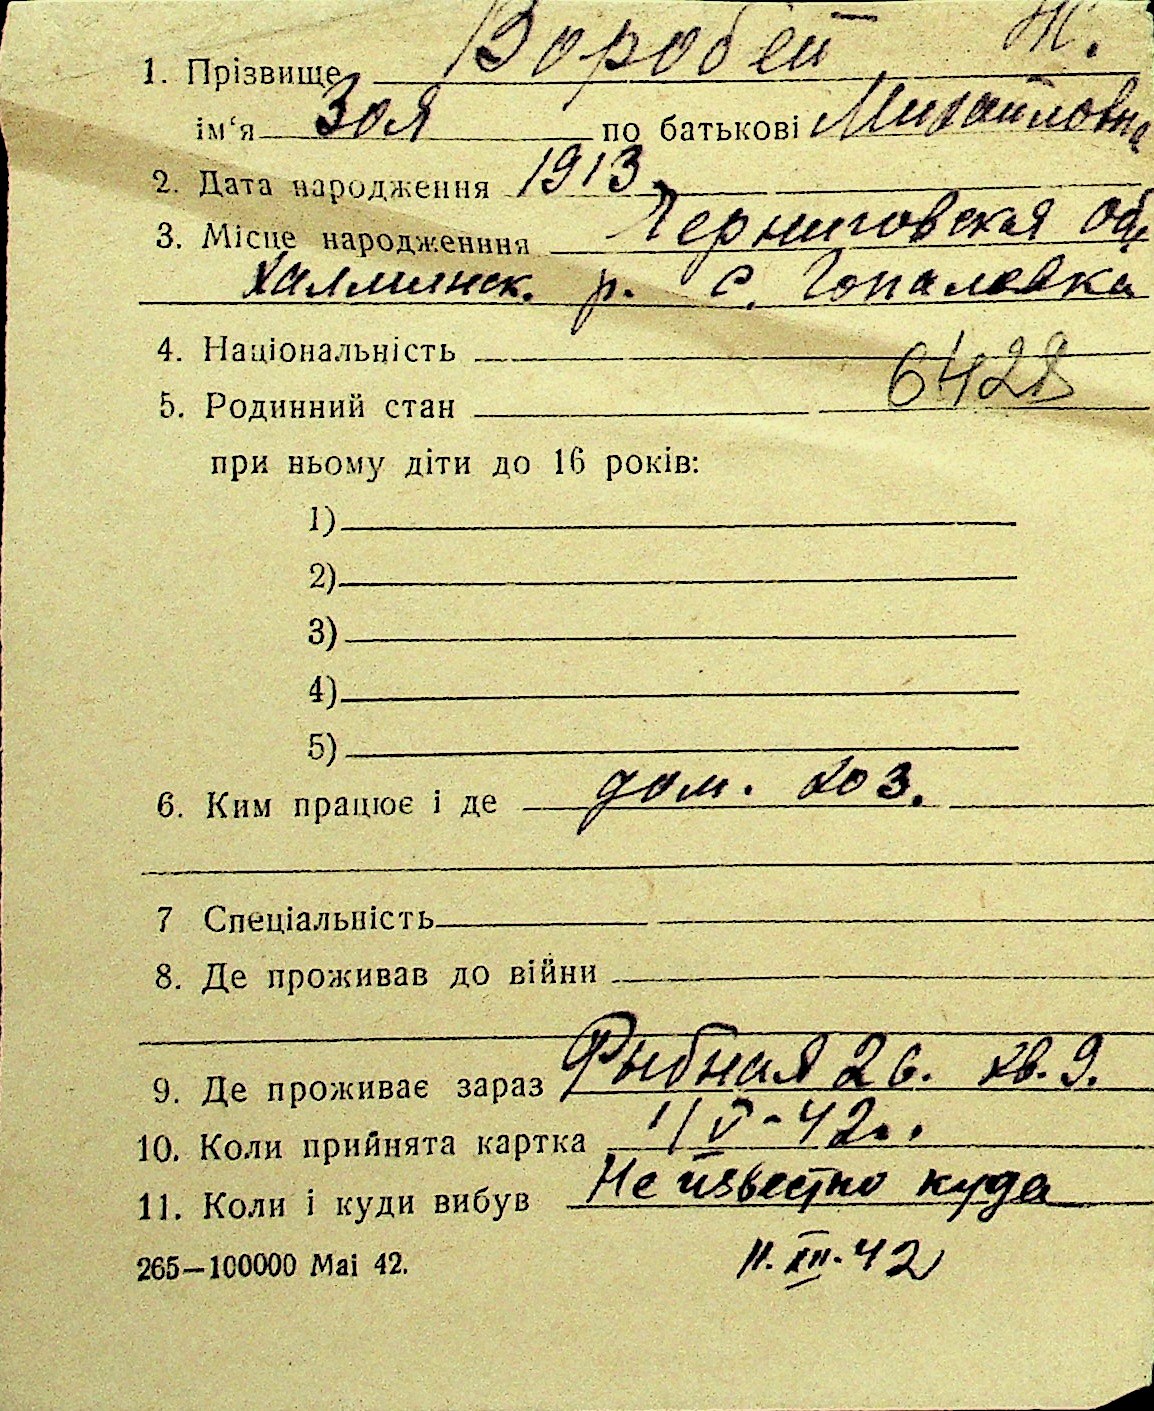 1. Прізвище Воробей Ж.
ім‘я Зоя по батькові Михайловна
2. Дата народження 1913
3. Місце народженння Черниговская обл
Халминск. р. с. Гопаловка
4. Національність
6428
5. Родинний стан
при ньому діти до 16 років:
1)
2)
3)
4)
5)
6. Ким працює і де дом. хоз.
7 Спеціальність
8. Де проживав до війни
9. Де проживає зараз Рыбная 26. кв. 9.
10. Коли прийнята картка 1/V-42г.
11. Коли і куди вибув Не известно куда
265—100000 Mai 42.
11.XII.42